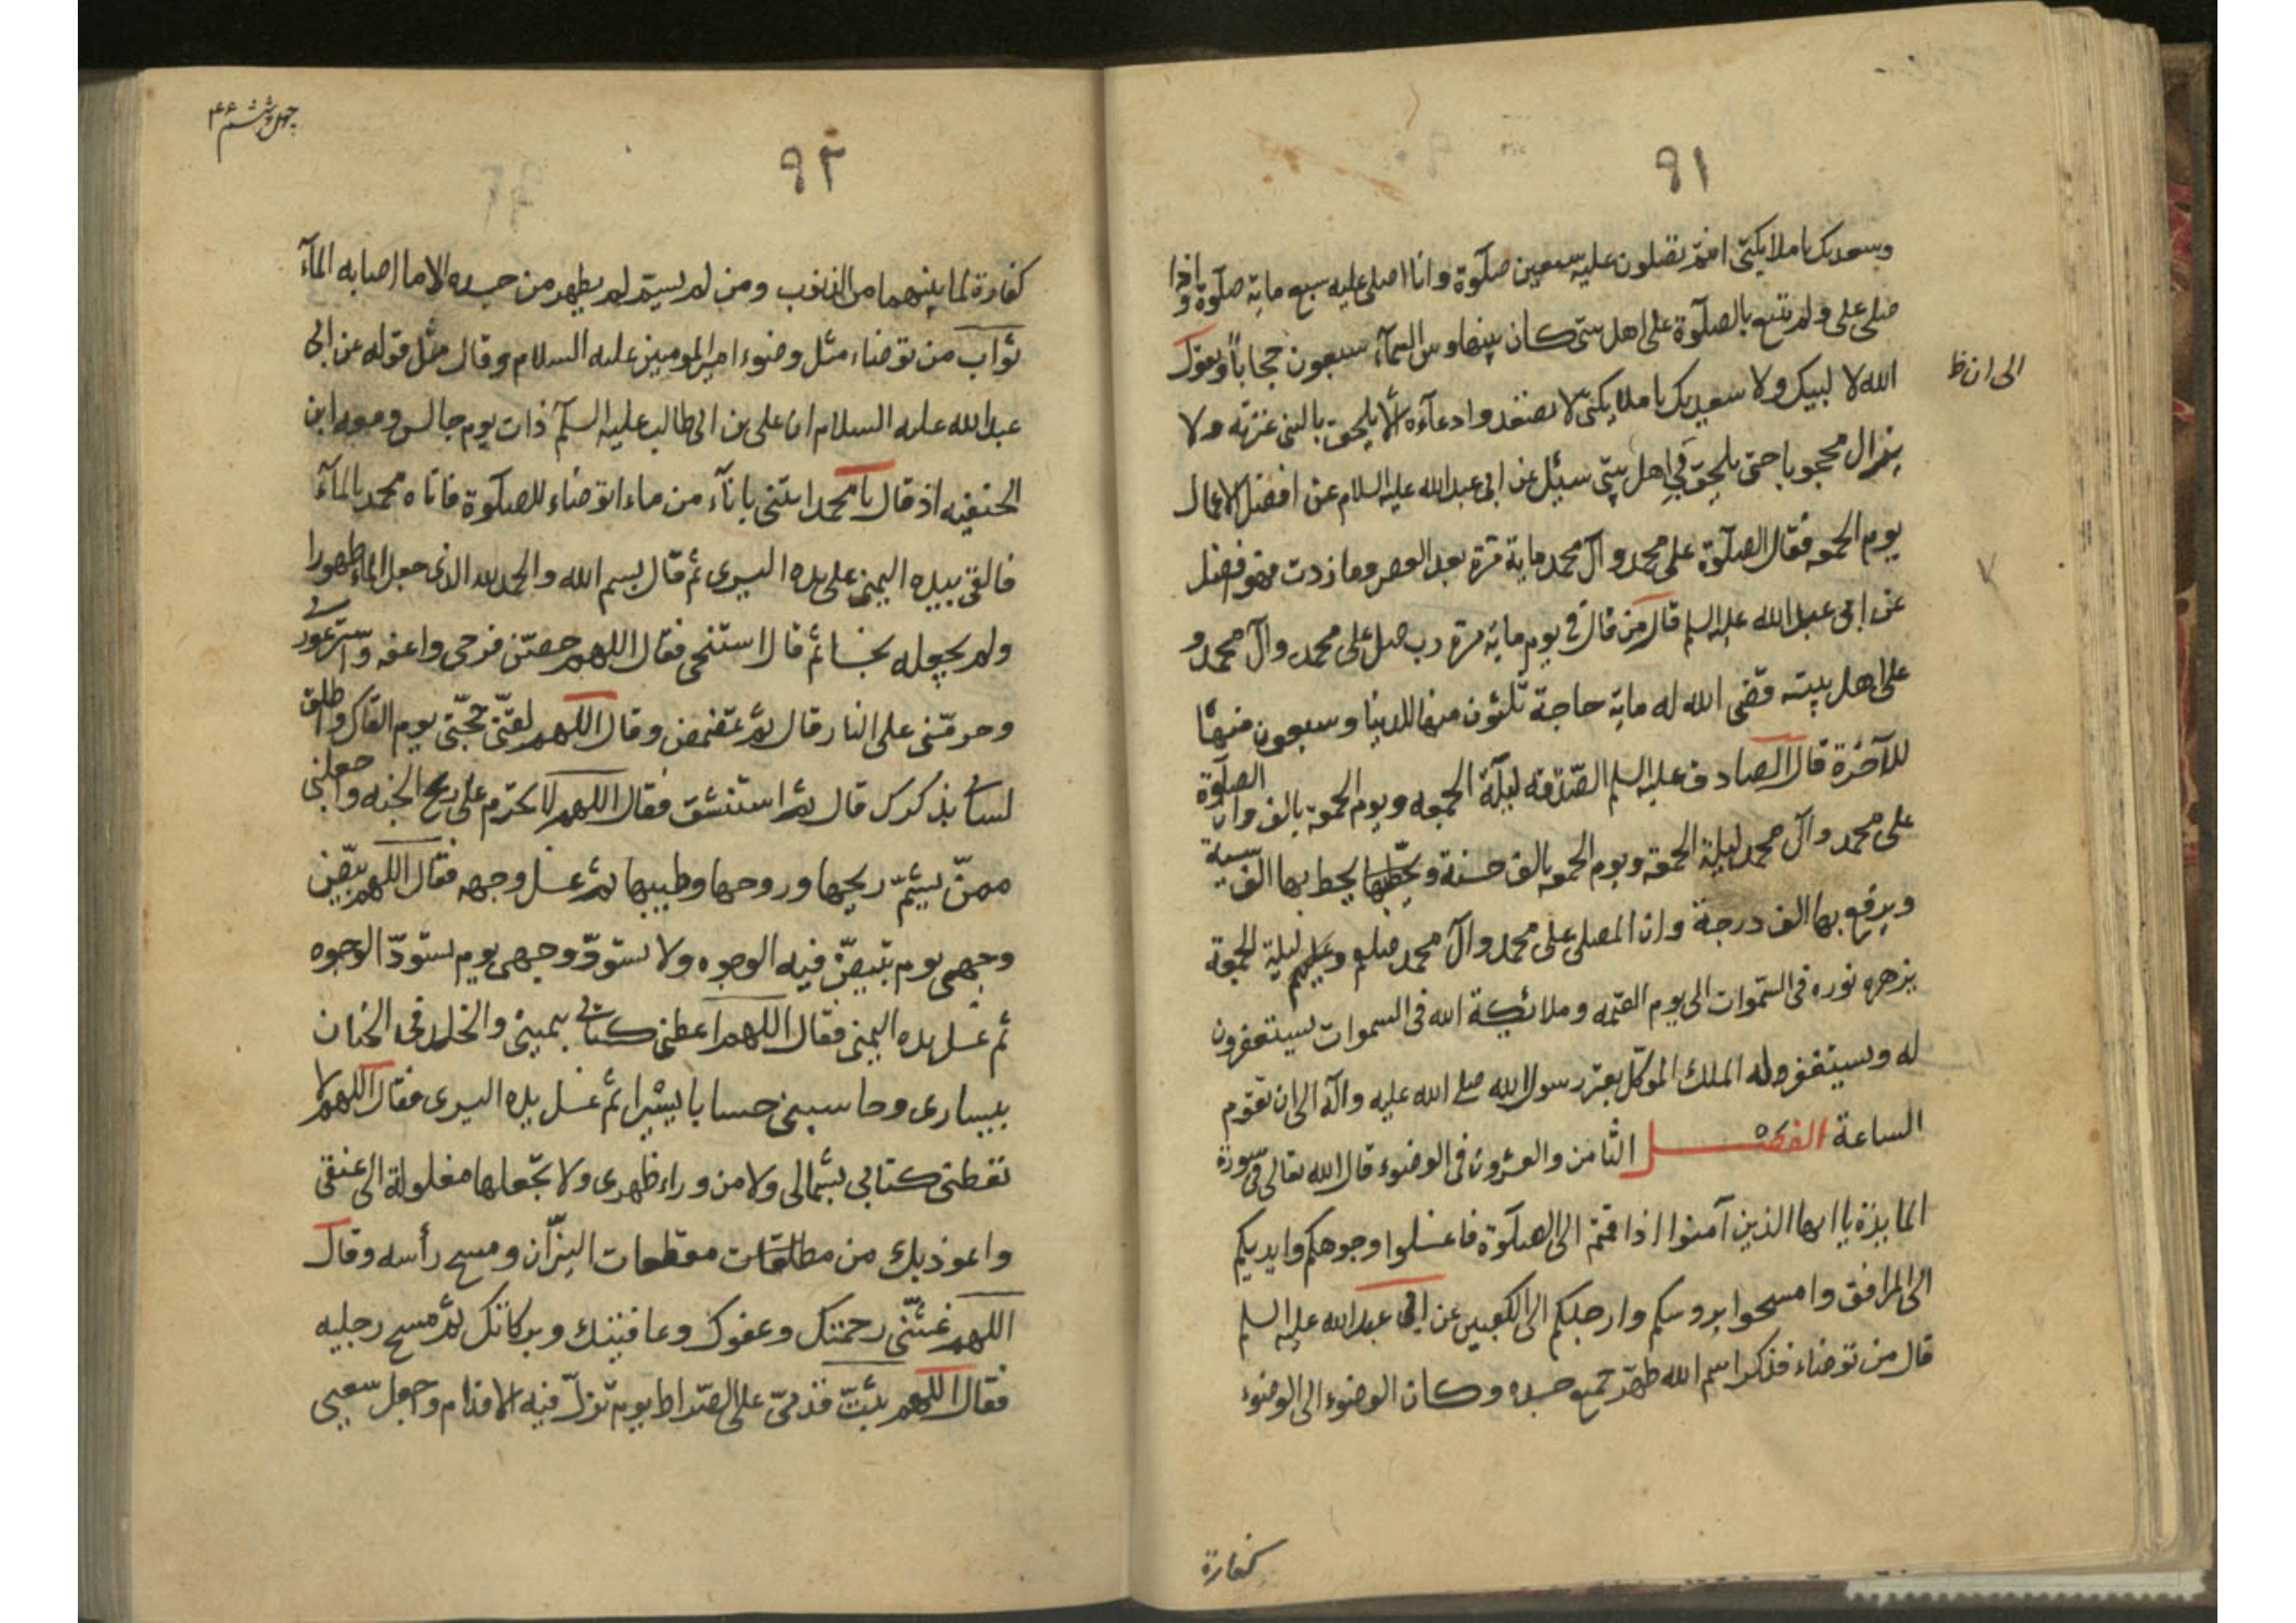 ٩١
وسعديك يا ملائكتي انتم تصلون عليه سبعين صلوة وانا اصلي عليه سبع ماية صلوة واذا
صلى علي ولم يتبع بالصلوة على اهل بيتي كان بينها وبين السمآء سبعون حجاباً ويقول
الله لا لبيك ولا سعديك يا ملائكتي لا تصعدوا دعآءه الا يلحق بالنبي عترته ولا
الى ان ظ
يزال محجوبا حتى يلحق في اهل بيتي سئل عن ابي عبد الله عليه السلام عن افضل الاعمال
يوم الجمعه فقال الصلوة على محمد وآل محمد ماية مرة بعد العصر وما زدت فهو افضل
عن ابي عبد الله عليه السلم قال من قال في يوم ماية مرة رب صل على محمد وآل محمد و
على اهل بيته قضى الله له ماية حاجة ثلثون منها للدنيا وسبعون منها
للآخرة قال الصادق عليه السلم الصدقه ليلة الجمعه ويوم الجمعة بالف وان الصلوة
على محمد وآل محمد ليلة الجمعة ويوم الجمعه بالف حسنة ويحط بها الف سيية
ويرفع بها الف درجة وان المصلى على محمد وآل محمد صلم وعليهم ليلة الجمعة
يزهره نوره في السموات الى يوم القيمه وملائكة الله في السموات يستغفرون
له ويستغفر له الملك الموكل بقبر رسول الله صلى الله عليه وآله الى ان تقوم
الساعة الفصل الثامن والعشرون في الوضوء قال الله تعالى في سورة
المايدة يا ايها الذين آمنوا اذا قمتم الى الصلوة فاغسلوا وجوهكم وايديكم
الى المرافق وامسحوا بروسكم وارجلكم الى الكعبين عن ابي عبد الله عليه السلم
قال من توضاء فذكر اسم الله طهر جميع جسده وكان الوضوء الى الوضوء
كفارة
چهل وشش ۴۶
٩٢
كفارة لما بينهما من الذنوب ومن لم يسم لم يطهر من جسده الا ما اصابه المآء
ثواب من توضاء مثل وضوء امير المومنين عليه السلام وقال مثل قوله عن ابي
عبد الله عليه السلام ان على بن ابي طالب عليه السلم ذات يوم جالس ومعه ابن
الحنفيه اذ قال يا محمد ايتني باناء من ماء اتوضاء للصلوة فاتاه محمد بالمآء
فالقى بيده اليمنى على يده اليسرى ثم قال بسم الله والحمد لله الذى جعل الماء طهورا
ولم يجعله نجسا ثم قال استنجى فقال اللهم حصن فرجى واعفه واستر عورتي
وحرمني على النار قال ثم تمضمض وقال اللهم لقني حجتي يوم القاك واطلق
لساني بذكرك قال ثم استنشق فقال اللهم لا تحرم على ريح الجنه واجعلني
ممن يشم ريحها وروحها وطيبها ثم غسل وجهه فقال اللهم بيض
وجهى يوم تبيض فيه الوجوه ولا تسود وجهى يوم تسود الوجوه
ثم غسل يده اليمنى فقال اللهم اعطنى كتابي بيمينى والخلد في الجنان
بيسارى وحاسبنى حسابا يسيرا ثم غسل يده اليسرى فقال اللهم لا
تعطنى كتابي بشمالى ولا من وراء ظهرى ولا تجعلها مغلولة الى عنقى
واعوذ بك من مقطعات النيران ومسح رأسه وقال
اللهم غشنى رحمتك وعفوك وعافيتك وبركاتك ثم مسح رجليه
فقال اللهم ثبت قدمى على الصراط يوم تزل فيه الاقدام واجعل سعيى